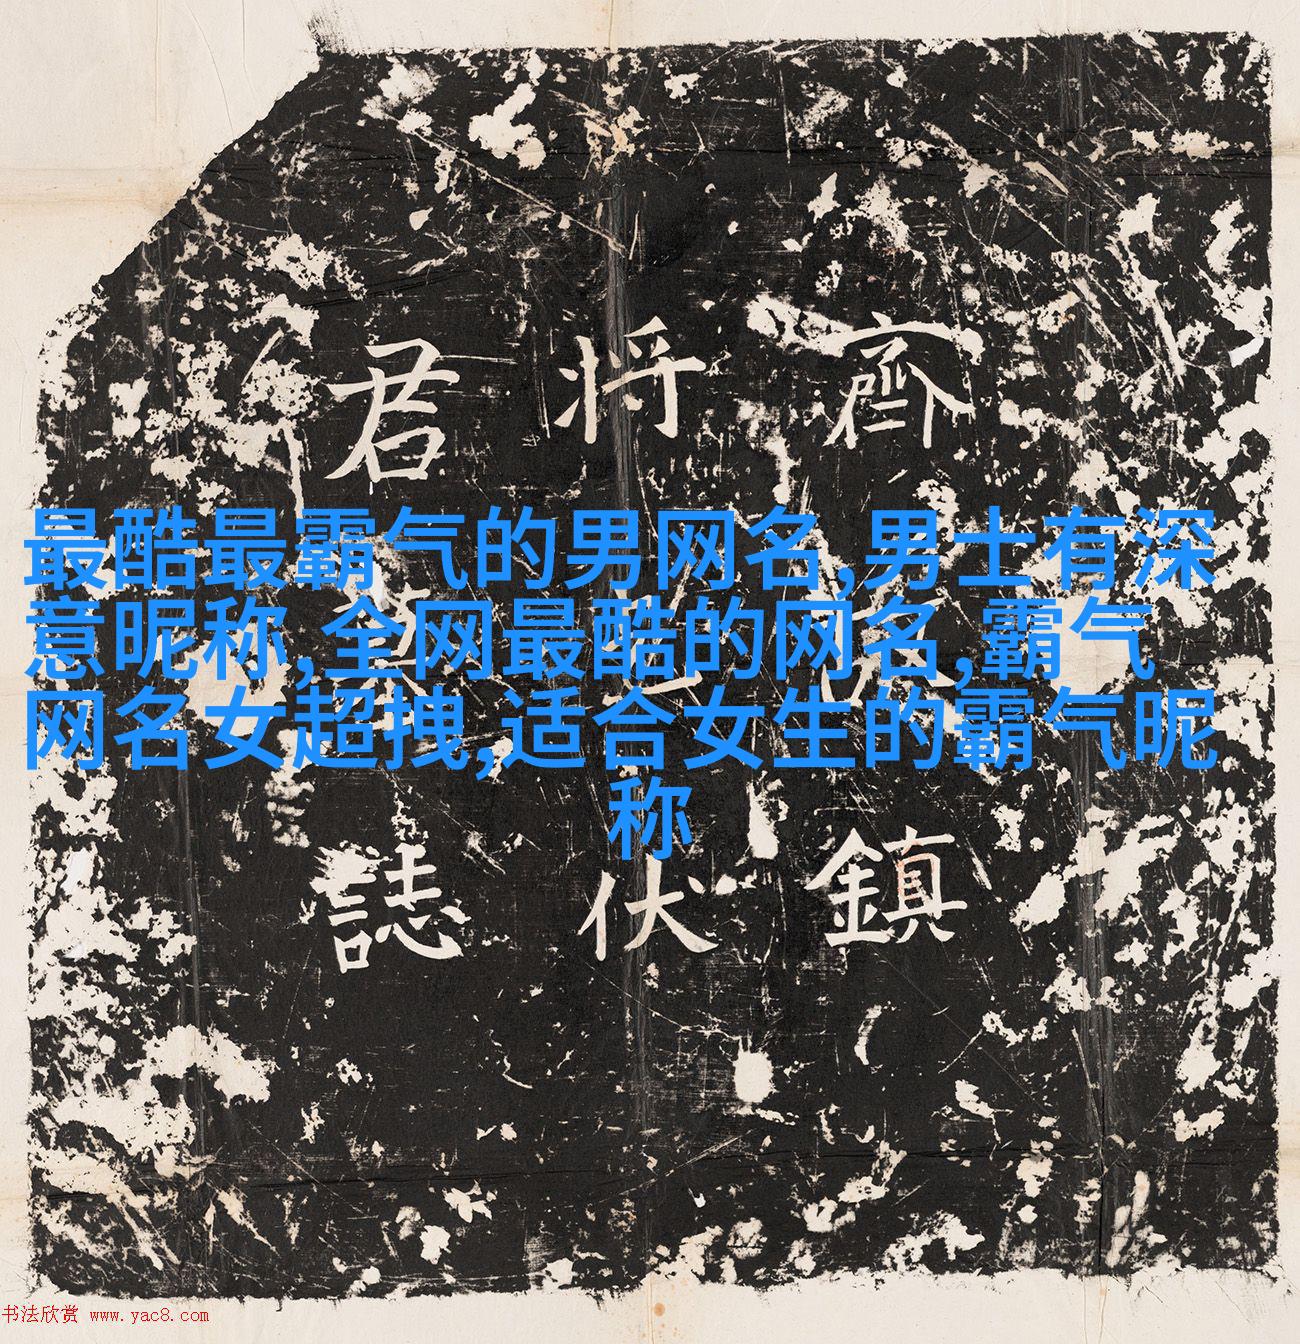 齊 鎮
将 伏
君 誌
最酷最霸气的男网名,男士有深
意昵称,全网最酷的网名,霸气
网名女超拽,适合女生的霸气昵
称
书法欣赏 www.yac8.com